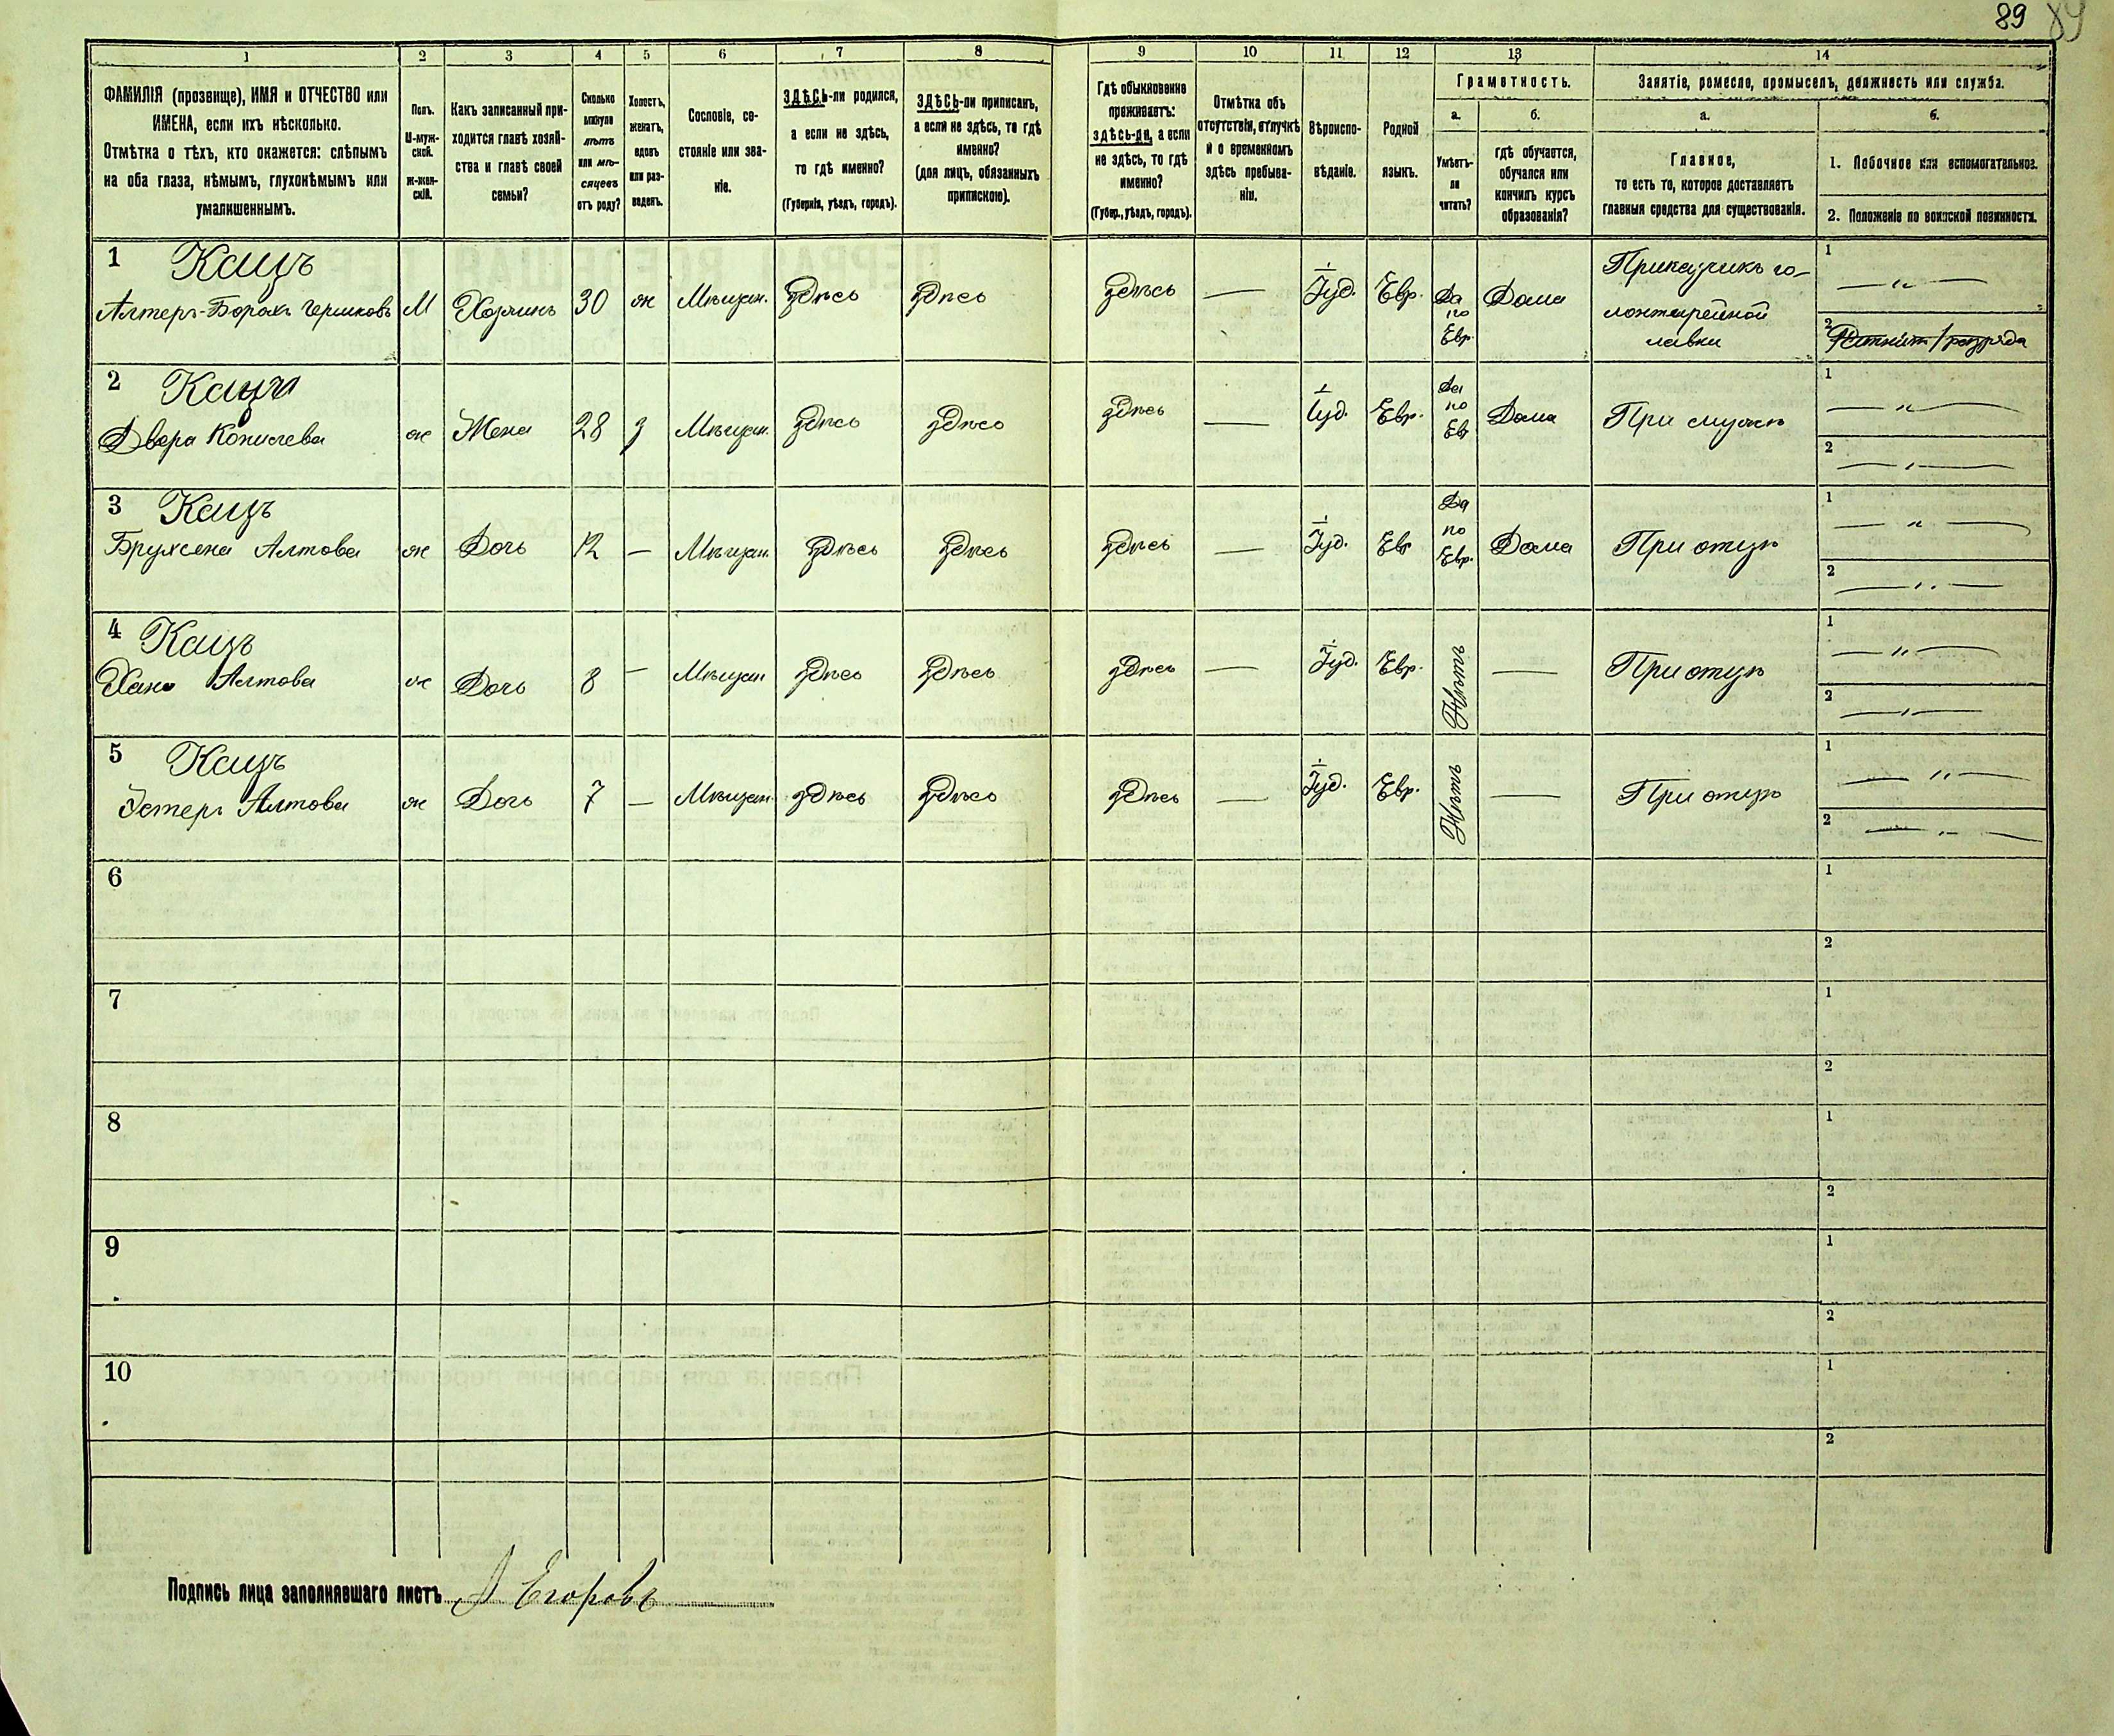 89 89
1 2 3 4 5 6 7 8 9 10 11 12 13 14
ФАМИЛІЯ (прозвище), ИМЯ и ОТЧЕСТВО или
ИМЕНА, если ихъ нѣсколько.
Отмѣтка о тѣхъ, кто окажется: слѣпымъ
на оба глаза, нѣмымъ, глухонѣмымъ или
умалишеннымъ.
Полъ.
М-муж-
ской.
Ж-жен-
скій.
Какъ записанный при-
ходится главѣ хозяй-
ства и главѣ своей
семьи?
Сколько
минуло
лѣтъ
или мѣ-
сяцевъ
отъ роду?
Холостъ,
женатъ,
вдовъ
или раз-
веденъ.
Сословіе, со-
стояніе или зва-
ніе.
ЗДѢСЬ-ли родился,
а если не здѣсь,
то гдѣ именно?
(Губернія, уѣздъ, городъ).
ЗДѢСЬ-ли приписанъ,
а если не здѣсь, то гдѣ
именно?
(для лицъ, обязанныхъ
припискою).
Гдѣ обыкновенно
проживаетъ:
здѣсь-ли, а если
не здѣсь, то гдѣ
именно?
(Губер., уѣздъ, городъ).
Отмѣтка объ
отсутствіи, отлучкѣ
и о временномъ
здѣсь пребыва-
ніи.
Вѣроиспо-
вѣданіе.
Родной
языкъ.
Грамотность.
а.
Умѣетъ-
ли
читать?
б.
гдѣ обучается,
обучался или
кончилъ курсъ
образованія?
Занятіе, ремесло, промыселъ, должность или служба.
а.
Главное,
то есть то, которое доставляетъ
главныя средства для существованія.
б.
1. Побочное или вспомогательное.
2. Положеніе по воинской повинности.
1 Кацъ
Алтеръ-Борохъ Гершковъ М Хозяинъ 30 ж Мѣщан. Здѣсь Здѣсь Здѣсь — Іуд. Евр. Да по Евр. Дома Приказчикъ га-
лантерейной
лавки
1 — " —
2 Ратникъ 1 разряда
2 Кацъ
Двера ж Жена 28 з Мѣщан. Здѣсь Здѣсь Здѣсь — Іуд. Евр. Да по Ев Дома При мужѣ
1 — " —
2 — " —
3 Кацъ
Алтова ж Дочь 12 — Мѣщан. Здѣсь Здѣсь Здѣсь — Іуд. Евр Да по Евр. Дома При отцѣ
1 — " —
2 — " —
4 Кацъ
Хана Алтова ж Дочь 8 — Мѣщан Здѣсь Здѣсь Здѣсь — Іуд. Евр. Нѣтъ — При отцѣ
1 — " —
2 — " —
5 Кацъ
Эстеръ Алтова ж Дочь 7 — Мѣщан. Здѣсь Здѣсь Здѣсь — Іуд. Евр. Нѣтъ — При отцѣ
1 — " —
2 — " —
6 1
2
7 1
2
8 1
2
9 1
2
10 1
2
Подпись лица заполнявшаго листъ Егоровъ